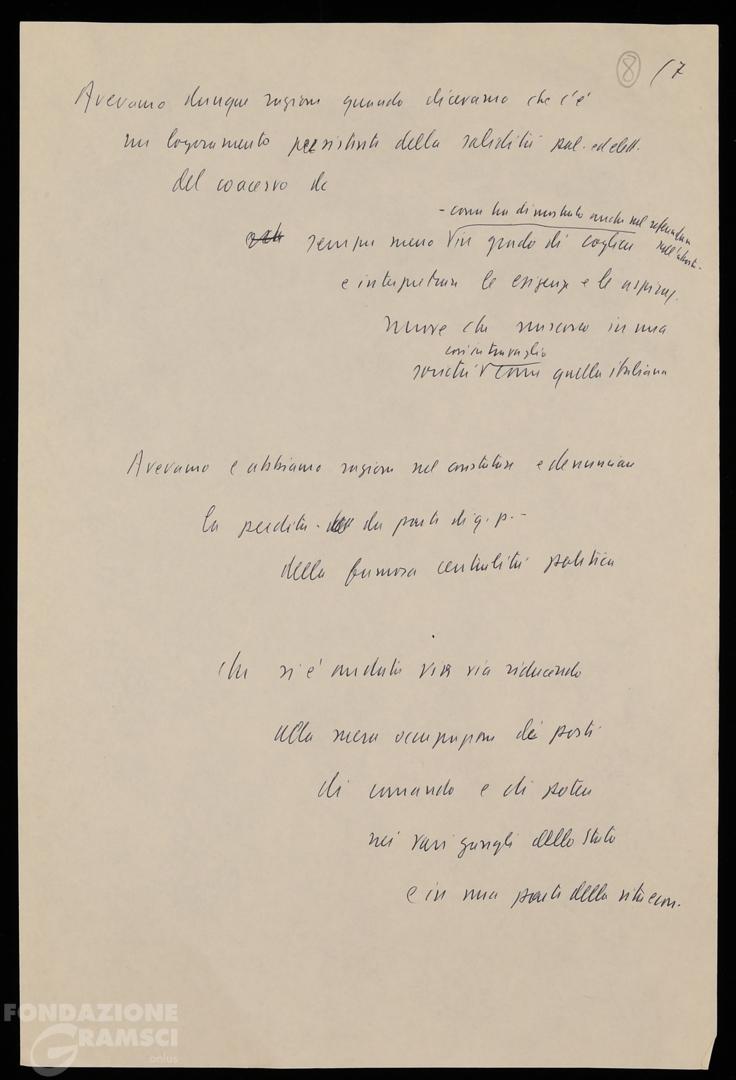 8 17
Avevamo dunque ragione quando dicevamo che c'è
un logoramento persistente della solidità pol. ed elett.
del coacervo dc
- come ha dimostrato anche nel referendum
sull'aborto -
sempre meno in grado di cogliere
e interpretare le esigenze e le aspiraz.
nuove che nascono in una
così in travaglio
società come quella italiana
Avevamo e abbiamo ragione nel constatare e denunciare
la perdita - da parte di q. p. -
della fumosa centralità politica
che si è andata via via riducendo
alla mera occupazione dei posti
di comando e di potere
nei vari gangli dello Stato
e in una parte della vita econ.
FONDAZIONE
GRAMSCI
onlus